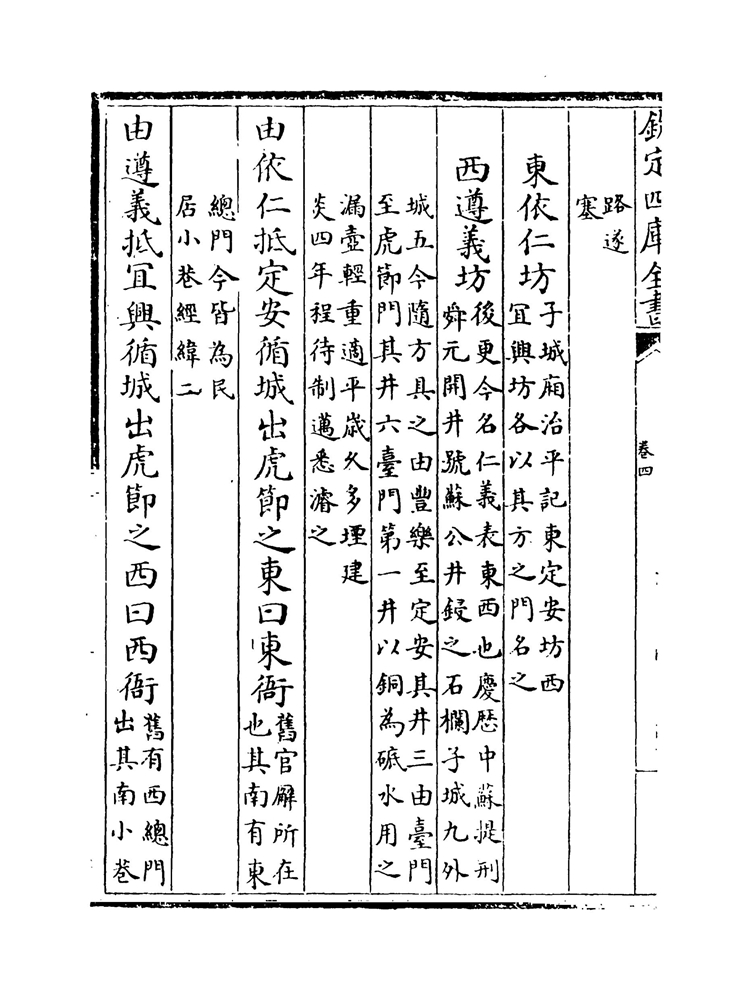 欽定四庫全書
卷四
路遂
塞
東依仁坊
子城廂治平記東定安坊西
宜興坊各以其方之門名之
西遵義坊
後更今名仁義表東西也慶歷中蘇提刑
舜元開井號蘇公井鋟之石欄子城九外
城五今隨方具之由豐樂至定安其井三由臺門
至虎節門其井六臺門第一井以銅為砥水用之
漏壺輕重適平歲久多堙建
炎四年程待制邁悉濬之
由依仁抵定安循城出虎節之東曰東衙
舊官廨所在
也其南有東
總門今皆為民
居小巷經緯二
由遵義抵宜興循城出虎節之西曰西衙
舊有西總門
出其南小巷